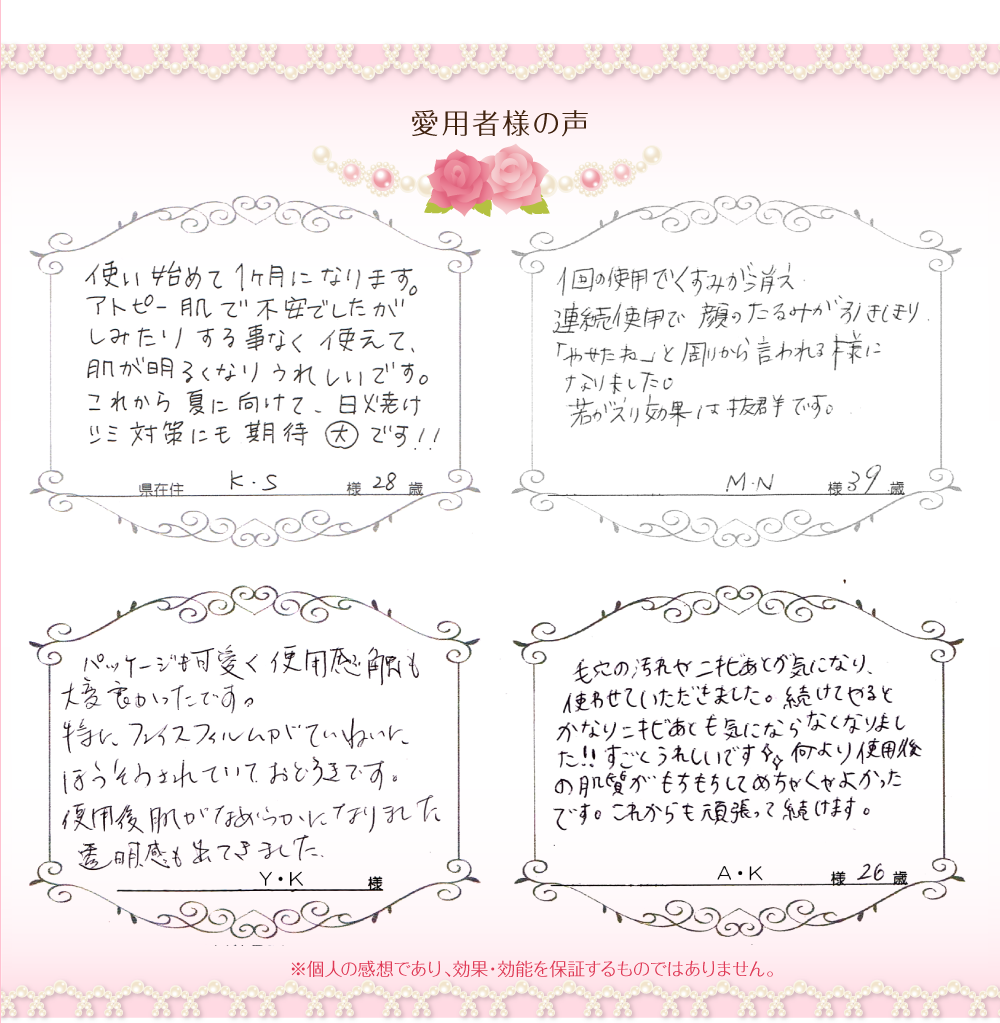 愛用者様の声
使い始めて1ヶ月になります。
アトピー肌で不安でしたが
しみたりする事なく使えて、
肌が明るくなりうれしいです。
これから夏に向けて、日焼け
シミ対策にも期待大です!!
県在住 K・S 様 28 歳
1回の使用でくすみが消え
連続使用で顔のたるみが引きしまり
「やせたね」と周りから言われる様に
なりました。
若がえり効果は抜群です。
M・N 様 39 歳
パッケージも可愛く使用感触も
大変良かったです。
特に、フェイスフィルムがていねいに、
ほうそうされていておどろきです。
使用後肌がなめらかになりました
透明感も出てきました。
Y・K 様
毛穴の汚れやニキビあとが気になり、
使わせていただきました。続けてやると
かなりニキビあとも気にならなくなりまし
た!!すごくうれしいです 何より使用後
の肌質がもちもちしてめちゃくちゃよかった
です。これからも頑張って続けます。
A・K 様 26 歳
※個人の感想であり、効果・効能を保証するものではありません。